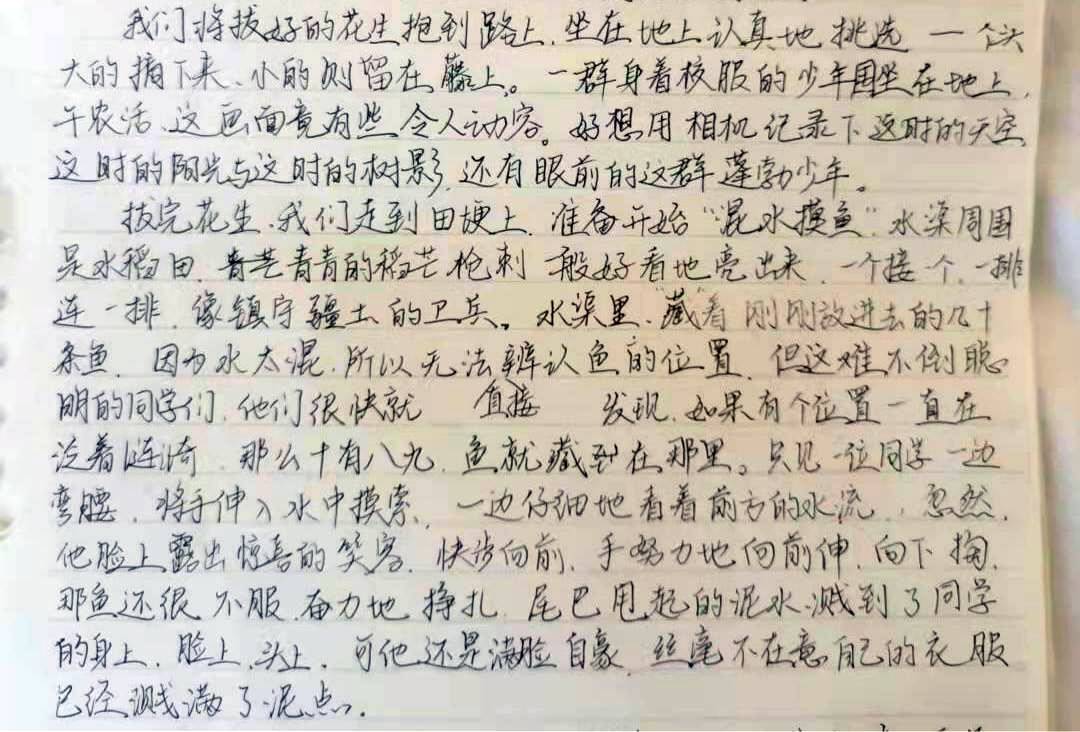 我们将拔好的花生抱到路上,坐在地上认真地挑选 一个头
大的摘下来、小的则留在藤上。一群身着校服的少年围坐在地上,
干农活,这画面竟有些令人动容。好想用相机记录下这时的天空,
这时的阳光与这时的树影,还有眼前的这群蓬勃少年。
拔完花生,我们走到田埂上,准备开始“混水摸鱼”水渠周围
是水稻田,青芒青青的稻芒枪刺一般好看地亮出来,一个接一个,一排
连一排,像镇守疆土的卫兵。水渠里,“藏”着刚刚放进去的几十
条鱼,因为水太混,所以无法辨认鱼的位置,但这难不倒聪
明的同学们,他们很快就 直接 发现,如果有个位置一直在
泛着涟漪,那么十有八九,鱼就藏到在那里。只见一位同学一边
弯腰,将手伸入水中摸索,一边仔细地看着前方的水流,忽然,
他脸上露出惊喜的笑容,快步向前,手努力地向前伸,向下掏,
那鱼还很不服,奋力地挣扎,尾巴甩起的泥水溅到了同学
的身上,脸上,头上,可他还是满脸自豪,丝毫不在意自己的衣服
已经溅满了泥点。